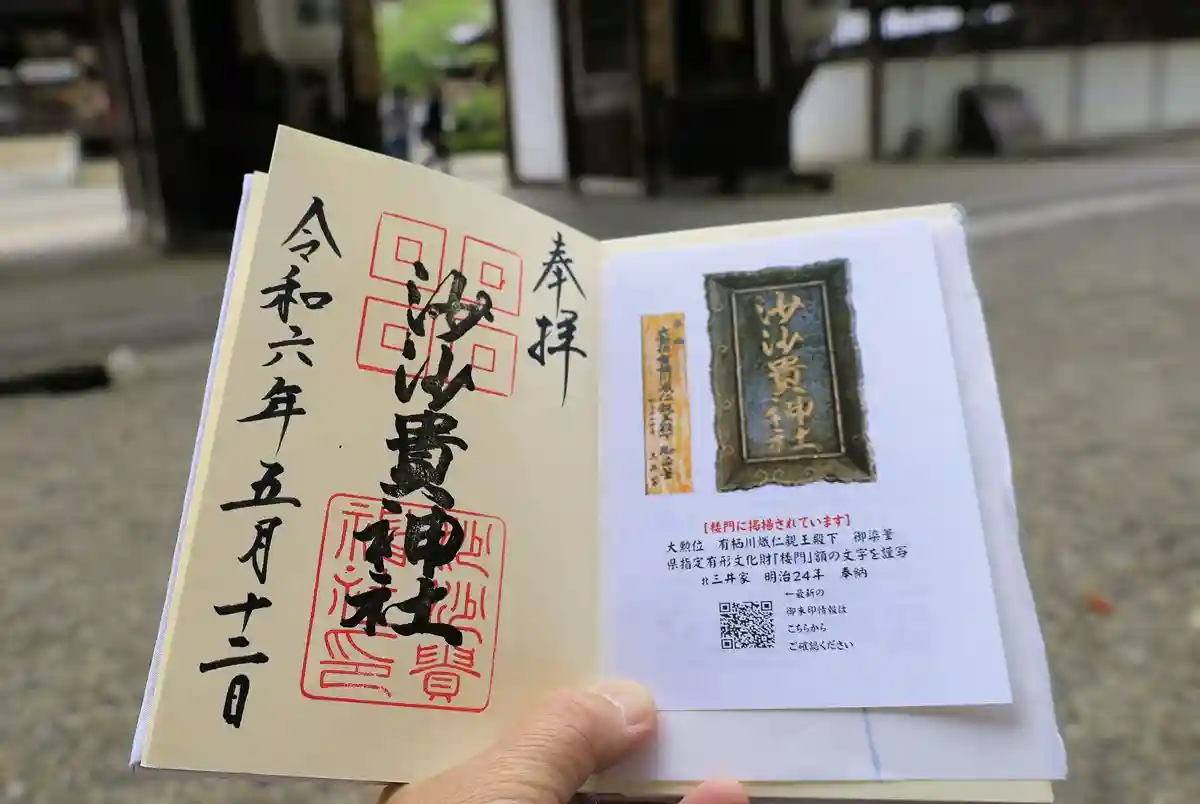 奉拝
沙沙貴神社
令和六年五月十二日
沙沙貴
神社印
沙沙貴神社
【楼門に掲揚されています】
大勲位 有栖川熾仁親王殿下 御染筆
県指定有形文化財「楼門」額の文字を謹写
三井家 明治24年 奉納
←最新の
御朱印情報は
こちらから
ご確認ください